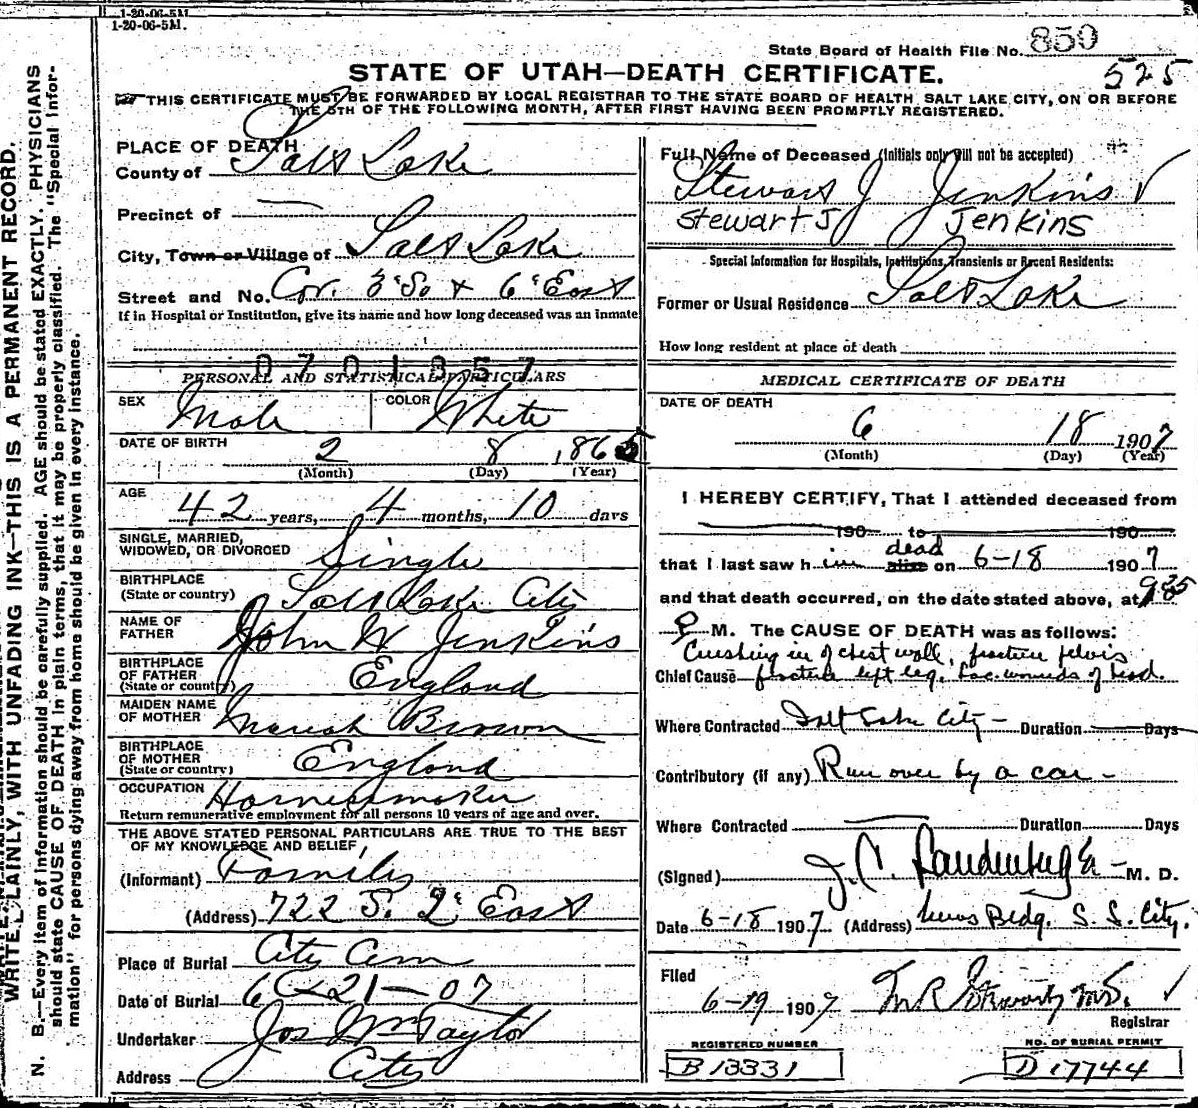 1-20-06-5M.
1-20-06-5M.
State Board of Health File No. 850
525
STATE OF UTAH—DEATH CERTIFICATE.
THIS CERTIFICATE MUST BE FORWARDED BY LOCAL REGISTRAR TO THE STATE BOARD OF HEALTH, SALT LAKE CITY, ON OR BEFORE
THE 5TH OF THE FOLLOWING MONTH, AFTER FIRST HAVING BEEN PROMPTLY REGISTERED.
WRITE PLAINLY, WITH UNFADING INK—THIS IS A PERMANENT RECORD.
N. B.—Every item of information should be carefully supplied. AGE should be stated EXACTLY. PHYSICIANS
should state CAUSE OF DEATH in plain terms, that it may be properly classified. The "Special Infor-
mation" for persons dying away from home should be given in every instance.
PLACE OF DEATH
County of Salt Lake
Precinct of —
City, Town or Village of Salt Lake
Street and No. Cor. 3 So & 6 East
If in Hospital or Institution, give its name and how long deceased was an inmate
0701357
PERSONAL AND STATISTICAL PARTICULARS
SEX Male COLOR White
DATE OF BIRTH 2 8 1865
(Month) (Day) (Year)
AGE 42 years, 4 months, 10 days
SINGLE, MARRIED,
WIDOWED, OR DIVORCED Single
BIRTHPLACE
(State or country) Salt Lake City
NAME OF
FATHER John W Jenkins
BIRTHPLACE
OF FATHER
(State or country) England
MAIDEN NAME
OF MOTHER Mariah Brown
BIRTHPLACE
OF MOTHER
(State or country) England
OCCUPATION Harnessmaker
Return remunerative employment for all persons 10 years of age and over.
THE ABOVE STATED PERSONAL PARTICULARS ARE TRUE TO THE BEST
OF MY KNOWLEDGE AND BELIEF,
(Informant) Family
(Address) 722 S. 2 East
Place of Burial City Cem
Date of Burial 6-21-07
Undertaker Jos Wm Taylor
Address City
Full Name of Deceased (Initials only will not be accepted)
Stewart J Jenkins
Stewart J Jenkins
Special Information for Hospitals, Institutions, Transients or Recent Residents:
Former or Usual Residence Salt Lake
How long resident at place of death
MEDICAL CERTIFICATE OF DEATH
DATE OF DEATH
6 18 1907
(Month) (Day) (Year)
I HEREBY CERTIFY, That I attended deceased from
190 to 190
that I last saw him alive dead on 6-18 1907
and that death occurred, on the date stated above, at
P M. The CAUSE OF DEATH was as follows:
Crushing in of chest wall, fracture pelvis
Chief Cause fracture left leg, Lac. wounds of head.
Where Contracted Salt Lake City — Duration — Days
Contributory (if any) Run over by a car -
Where Contracted — Duration Days
(Signed) J. C. Landenbergh M. D.
Date 6-18 1907 (Address) News Bldg. S. L. City.
Filed
6-19 1907
Registrar
REGISTERED NUMBER
B 13331
NO. OF BURIAL PERMIT
D 17744